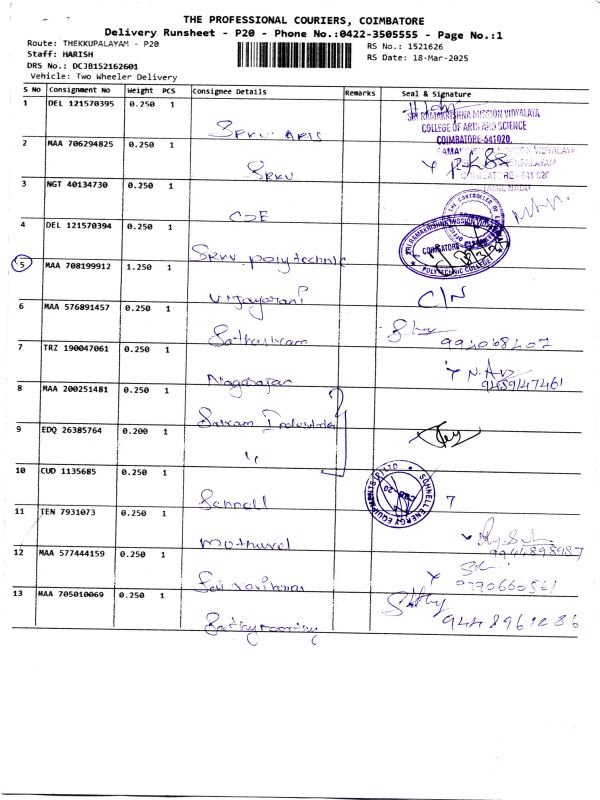 THE PROFESSIONAL COURIERS, COIMBATORE
Delivery Runsheet - P20 - Phone No.:0422-3505555 - Page No.:1
Route: THEKKUPALAYAM - P20
RS No.: 1521626
Staff: HARISH
RS Date: 18-Mar-2025
DRS No.: DCJB152162601
Vehicle: Two Wheeler Delivery
S No Consignment No Weight PCS Consignee Details Remarks Seal & Signature
1 DEL 121570395 0.250 1
SRI RAMAKRISHNA MISSION VIDYALAYA
COLLEGE OF ARTS AND SCIENCE
COIMBATORE-641020.
2 MAA 706294825 0.250 1 SRKV
COIMBATORE - 641 020
TAMIL NADU
3 NGT 40134730 0.250 1 COE
THE CONTROLLER OF
4 DEL 121570394 0.250 1 SRKV polytechnic
SRI RAMAKRISHNA MISSION VIDYALAYA
POLYTECHNIC COLLEGE
5 MAA 708199912 1.250 1 Vijayarani C/N
6 MAA 576891457 0.250 1
7 TRZ 190047061 0.250 1 Nagarajan
9489147461
8 MAA 200251481 0.250 1 Sriram Industries
9 EDQ 26385764 0.200 1 "
10 CUD 1135685 0.250 1 Schnell
SCHNELL ENERGY EQUIPMENTS (P) LTD
CBE - 20
7
11 TEN 7931073 0.250 1
9944898987
12 MAA 577444159 0.250 1
13 MAA 705010069 0.250 1 Sathymoorthy